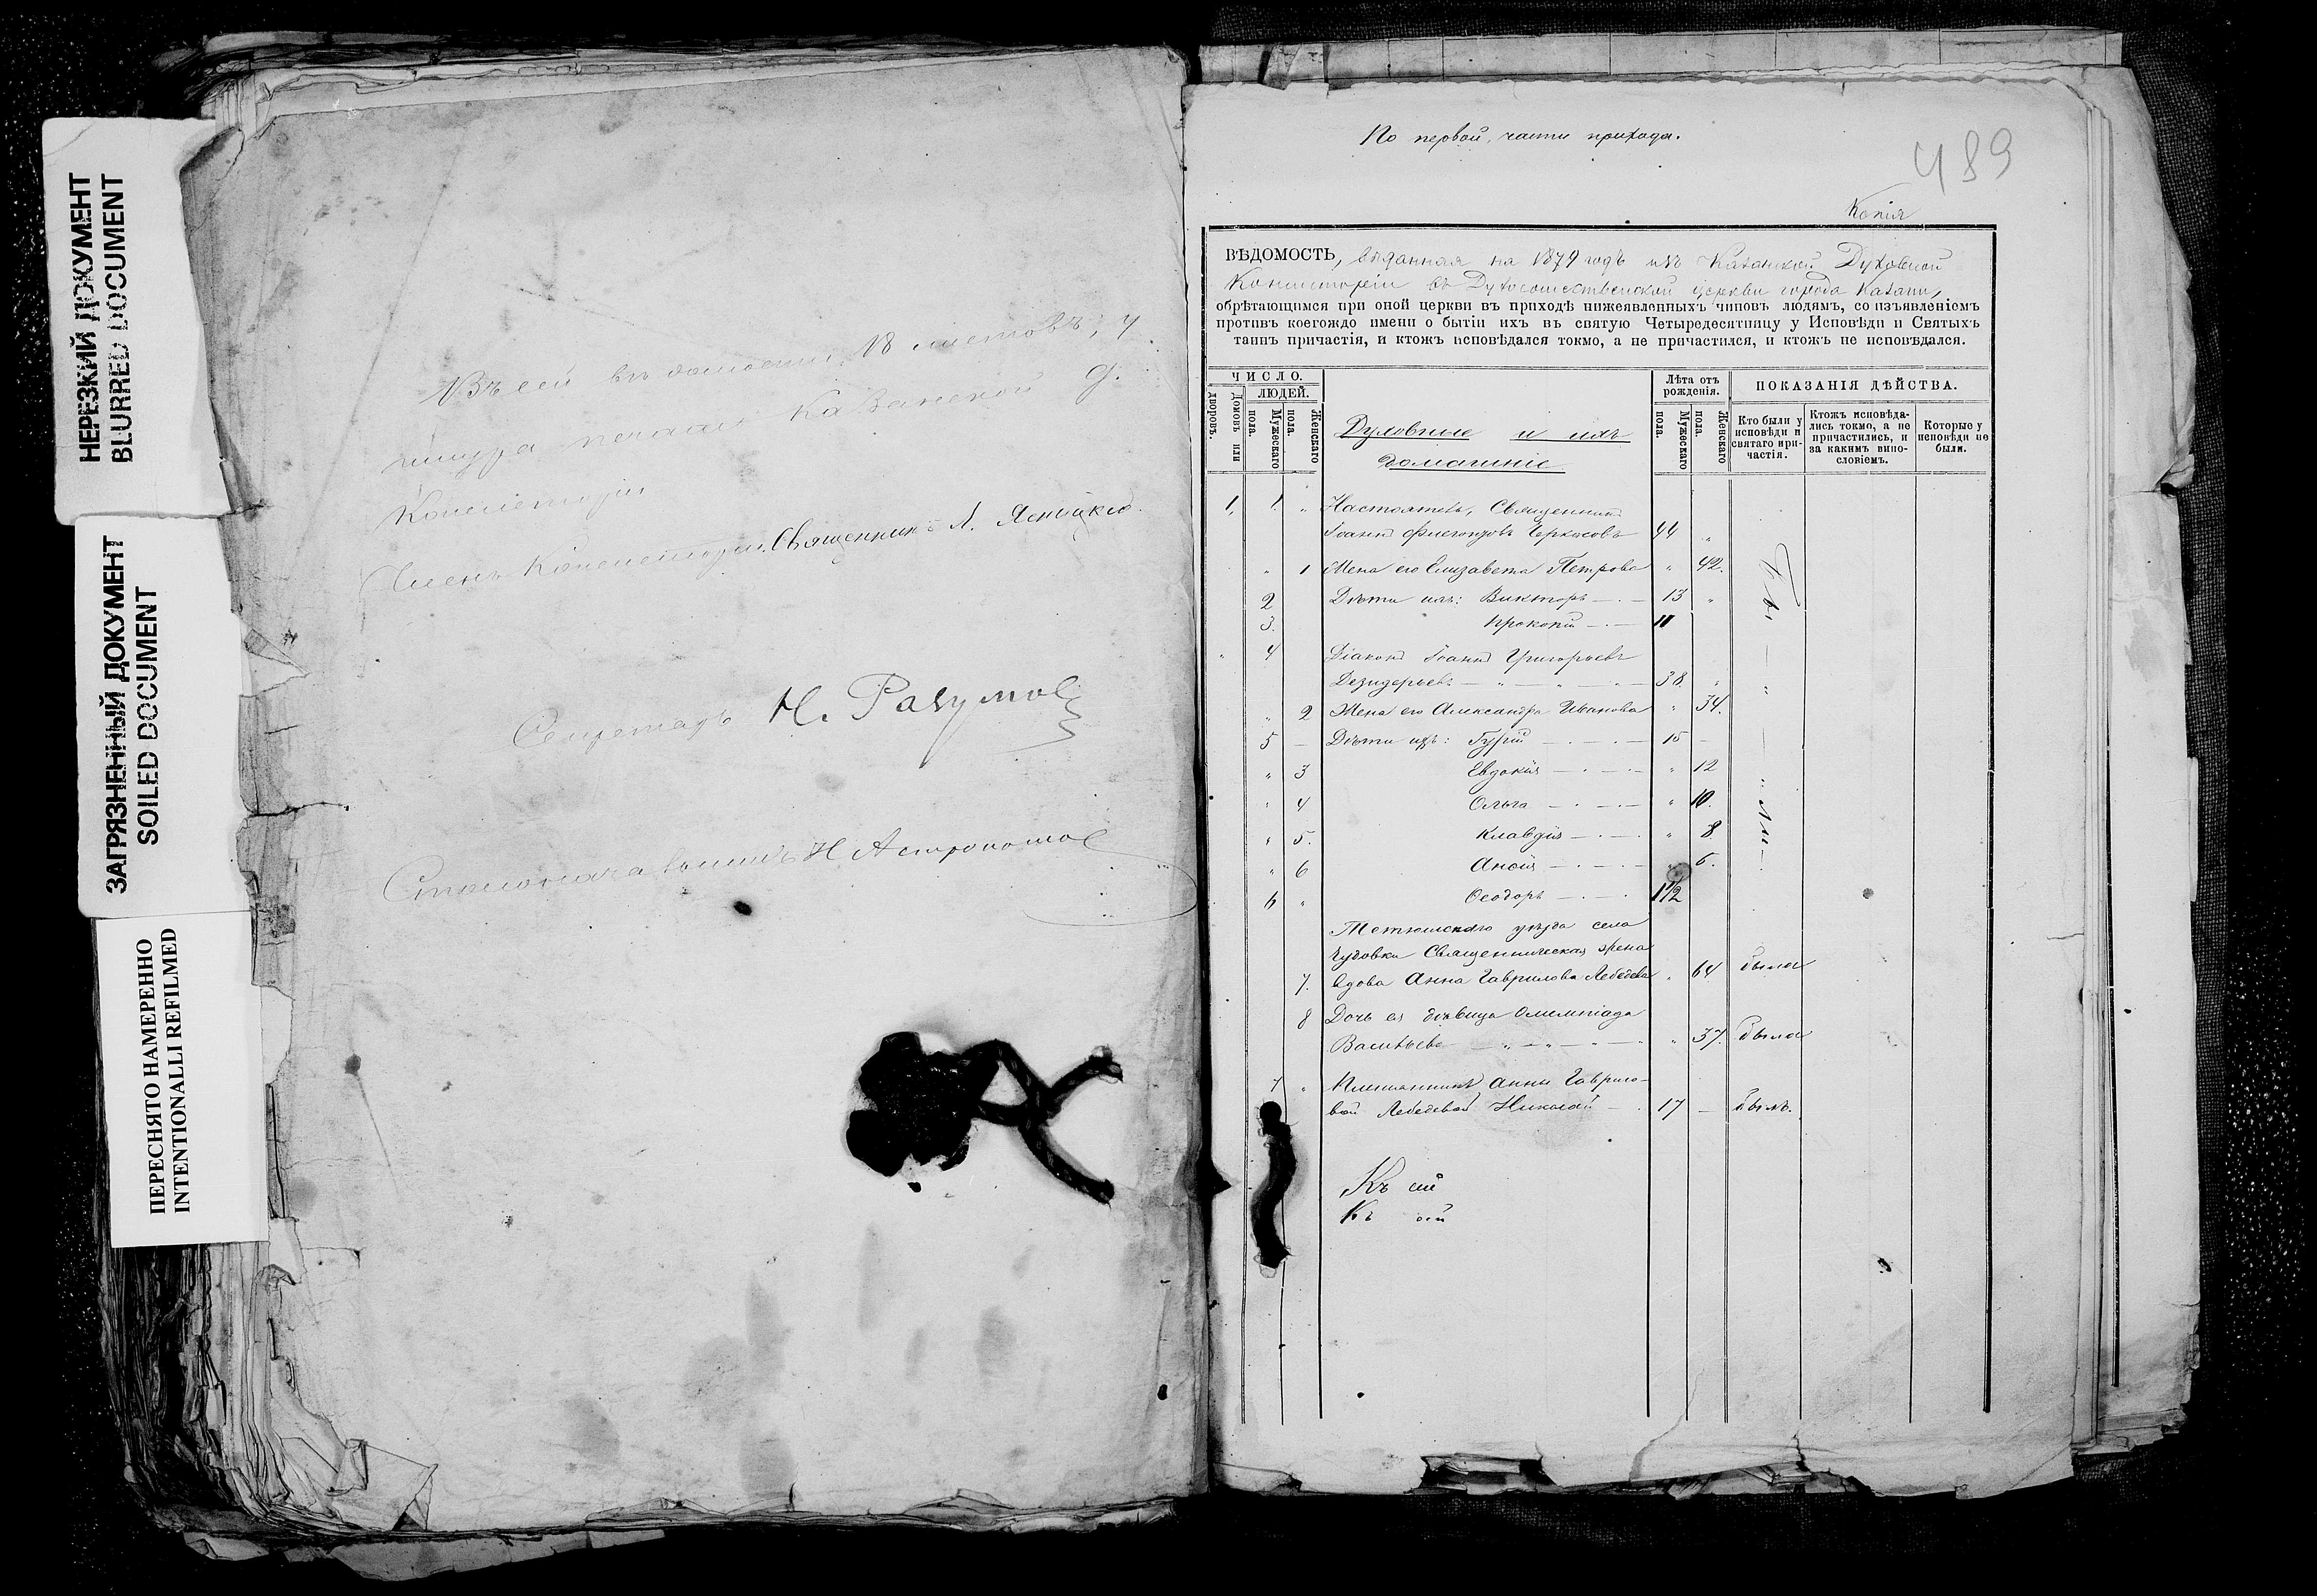 НЕРЕЗКИЙ ДОКУМЕНТ
BLURRED DOCUMENT
ЗАГРЯЗНЕННЫЙ ДОКУМЕНТ
SOILED DOCUMENT
ПЕРЕСНЯТО НАМЕРЕННО
INTENTIONALLI REFILMED
Въ сей вѣдомости 18 листовъ, у
шнура печать Казанской Д.
Консисторіи
Членъ Консисторіи Священникъ А. Ясницкій.
Секретарь Н. Разумов
Столоначальникъ Н Астрономов
По первой, части прихода.
489
Копія
ВѢДОМОСТЬ, выданная на 1879 годъ изъ Казанской Духовной
Консисторіи въ Духосошественской церкви города Казани,
обрѣтающимся при оной церкви въ приходѣ нижеявленныхъ чиновъ людямъ, со изъявленіемъ
противъ коегождо имени о бытіи ихъ въ святую Четыредесятницу у Исповѣди и Святыхъ
таинъ причастія, и ктожъ исповѣдался токмо, а не причастился, и ктожъ не исповѣдался.
ЧИСЛО.
ЛЮДЕЙ.
Домовъ или дворовъ.
Мужескаго пола.
Женскаго пола.
Духовные и ихъ
домашніе
Лѣта отъ рожденія.
Мужескаго пола.
Женскаго пола.
ПОКАЗАНІЯ ДѢЙСТВА.
Кто были у исповѣди и святаго причастія.
Ктожъ исповѣдались токмо, а не причастились, и за какимъ винословіемъ.
Которые у исповѣди не были.
1, 1. " Настоятель, Священникъ
Іоаннъ Черкасовъ 44 "
" 1 Жена его Елизавета Петрова " 42.
2 Дѣти ихъ: Викторъ — . — 13 "
3. Прокопій — . — 11
" 4 Діаконъ Іоаннъ Григорьевъ
Дезидерьевъ — " — " — . — 38. "
" 2 Жена его Александра Иванова " 34.
5 — Дѣти ихъ: Гурій — . — . — 15 —
" 3 Евдокія — . — . — " 12
" 4 Ольга — . — . — " 10.
" 5. Клавдія — . — . " 8
" 6 Анѳія — . — . — " 6.
6 " Ѳеодоръ — . — . 1 1/2
Бы
ли
Тетюшскаго уѣзда села
Священническая жена
7. вдова Анна Гаврилова Лебедева " 64 была
8 Дочь ея дѣвица Олимпіада
Васильева — " — " — " — " 37. была
7 " Племянникъ Анны Гаврило-
вой Лебедевой Николай — . 17 — былъ.
Къ сей
Къ сей